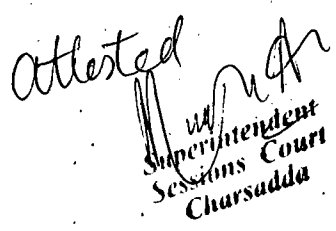 Attested
Superintendent
Sessions Court
Charsadda